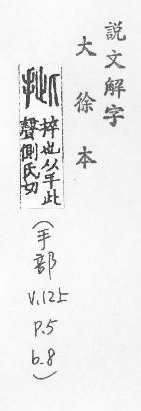 説文解字
大徐本
㧗 捽也从手此
聲側氏切
(手部
V.12上
P.5
b.8)